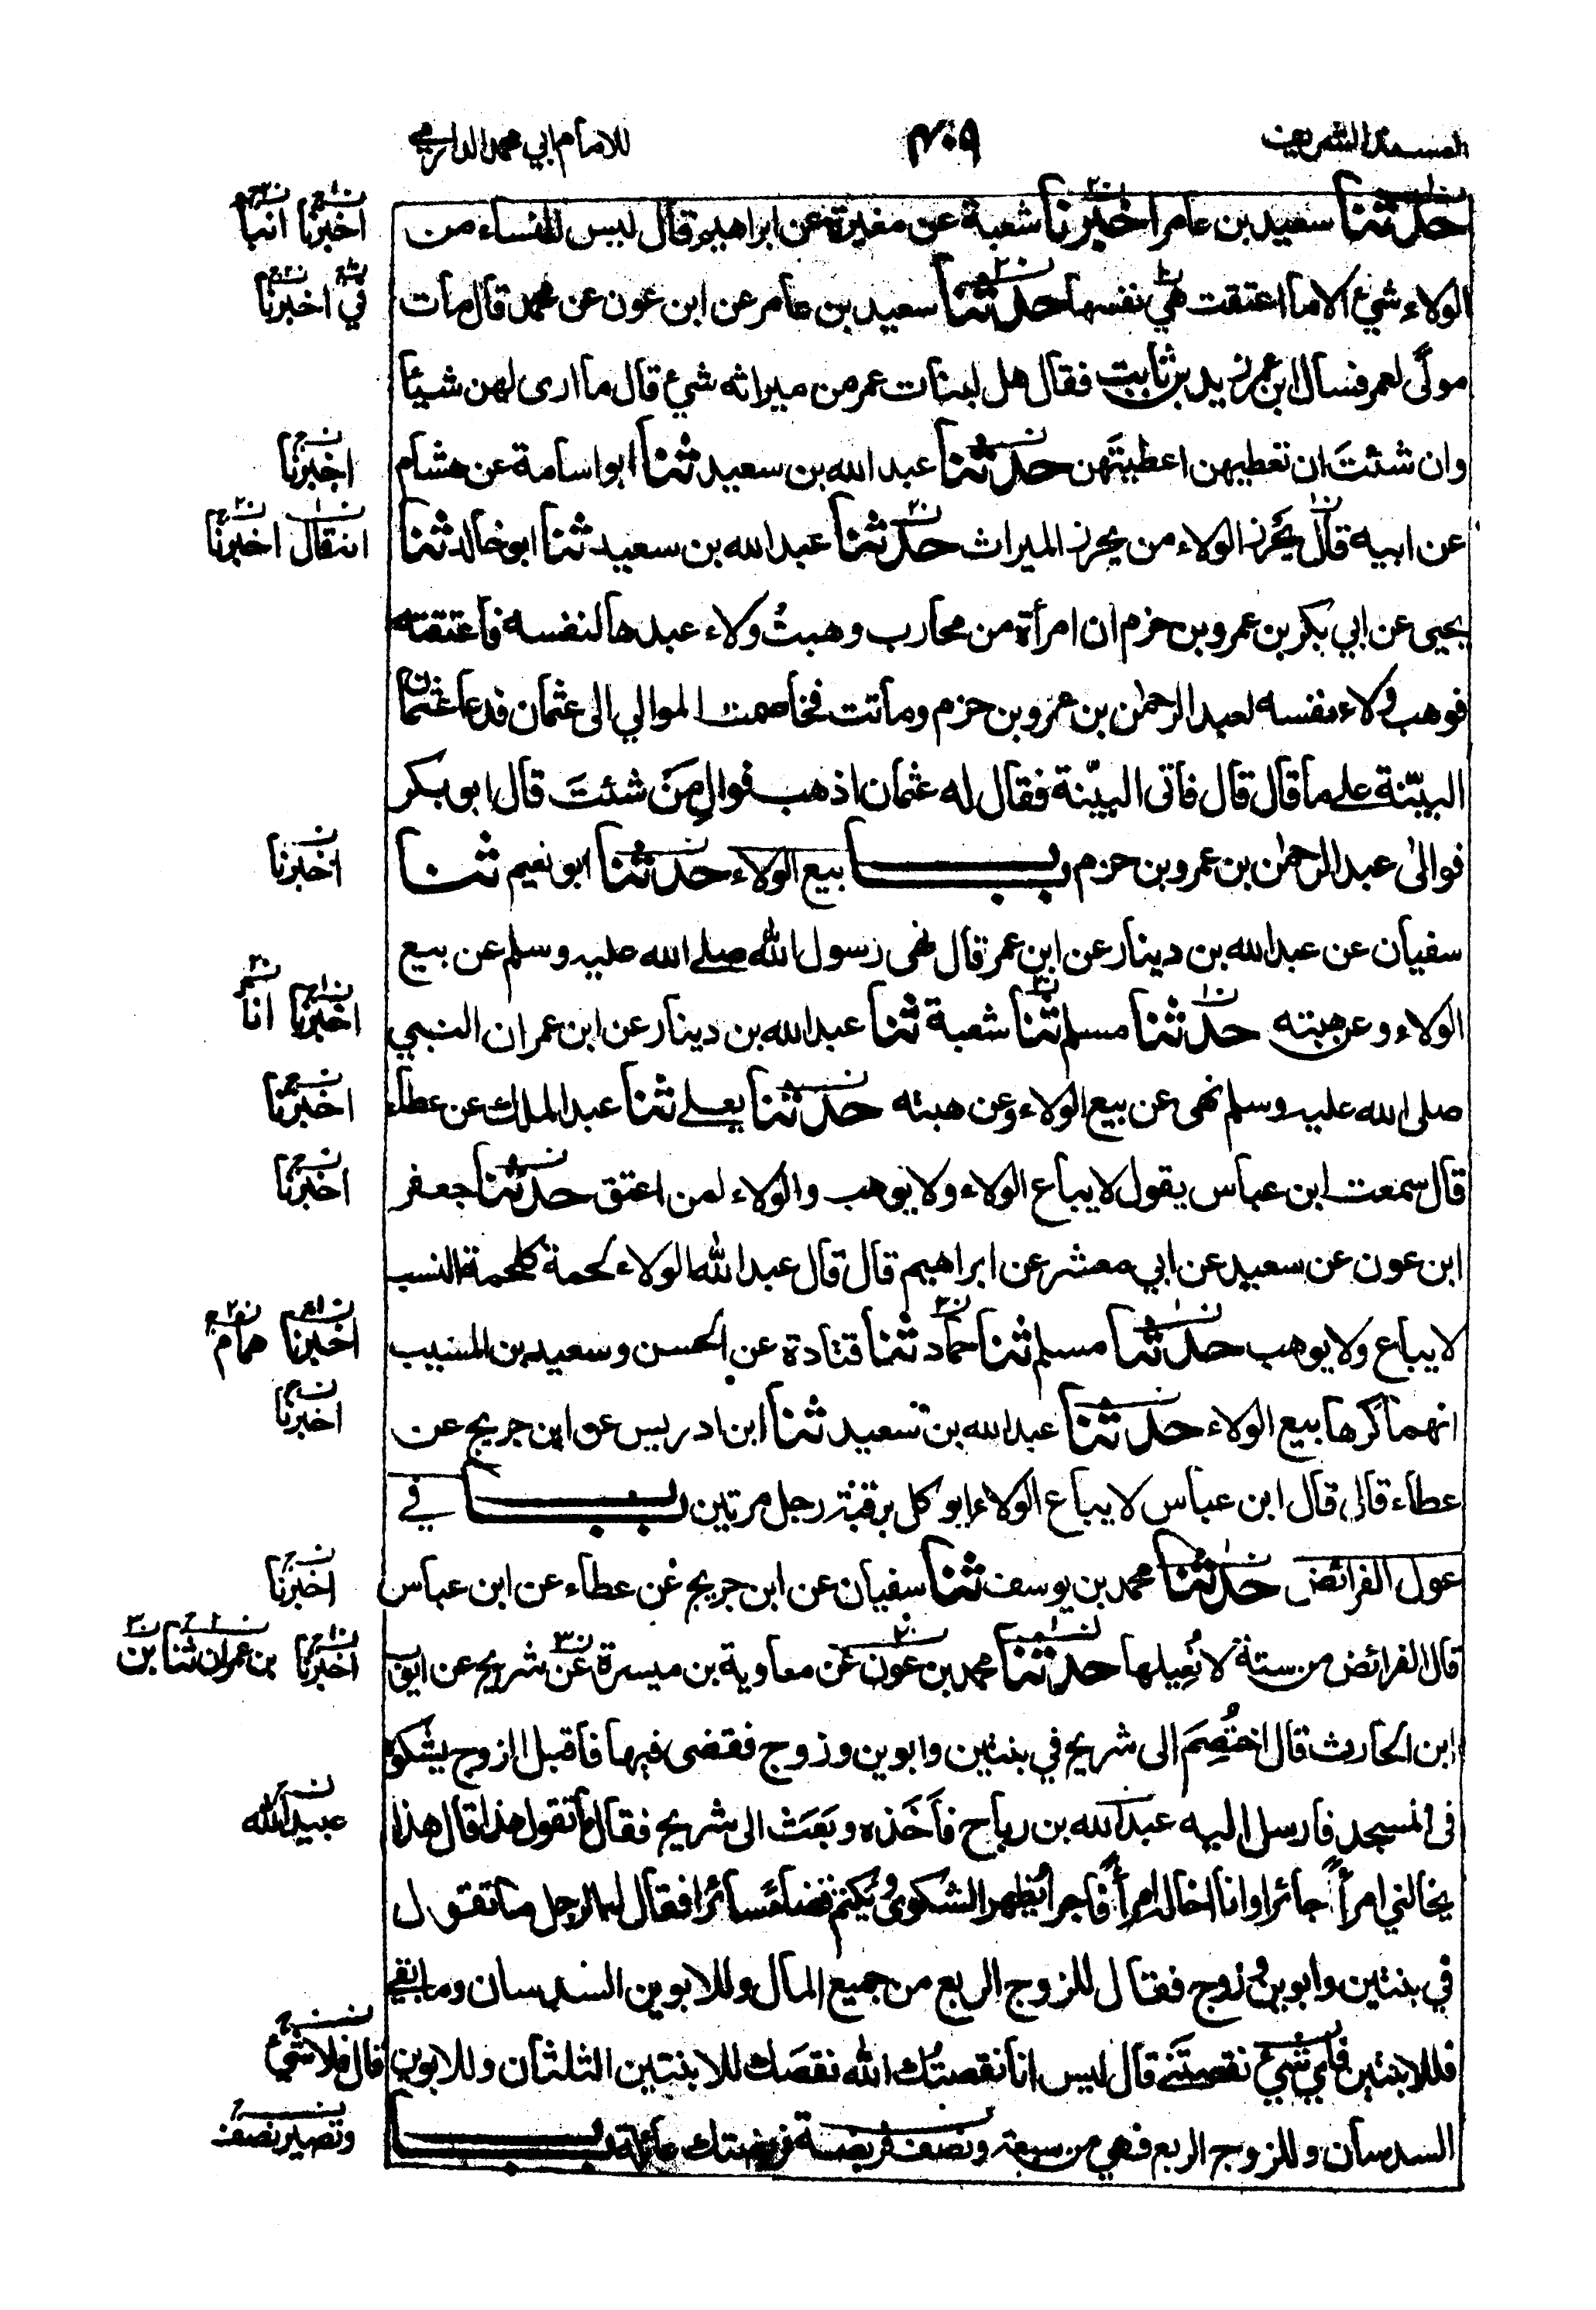 المسند الشريف ٤٠٩ للامام ابي محمد الدارمي
حدثنا سعيد بن عامر اخبرنا شعبة عن مغيرة عن ابراهيم قال ليس للنساء من
اخبرنا انبا
الولاء شيء الا ما اعتقت هي نفسها حدثنا سعيد بن عامر عن ابن عون عن محمد قال مات
في اخبرنا
مولًى لعمر فسال ابن عمر زيد بن ثابت فقال هل لبنات عمر من ميراثه شيء قال ما ارى لهن شيئا
وان شئتَ ان تعطيهن اعطيتَهن حدثنا عبد الله بن سعيد ثنا ابو اسامة عن هشام
اخبرنا
عن ابيه قال يحرز الولاء من يحرز الميراث حدثنا عبد الله بن سعيد ثنا ابو خالد ثنا
انه قال اخبرنا
يحيى عن ابي بكر بن عمرو بن حزم ان امرأة من محارب وهبتْ ولاء عبدها لنفسه فاعتقته
فوهب ولاء نفسه لعبد الرحمٰن بن عمرو بن حزم وماتت فخاصمت الموالي الى عثمان فدعا عثمان
البيّنة على ما قال قال فاتى البيّنة فقال له عثمان اذهب فوالِ مَن شئتَ قال ابو بكر
فوالى عبد الرحمٰن بن عمرو بن حزم باب بيع الولاء حدثنا ابو نعيم ثنا
اخبرنا
سفيان عن عبد الله بن دينار عن ابن عمر قال نهى رسول الله صلى الله عليه وسلم عن بيع
الولاء وعن هبته حدثنا مسلم ثنا شعبة ثنا عبد الله بن دينار عن ابن عمر ان النبي
اخبرنا انا
صلى الله عليه وسلم نهى عن بيع الولاء وعن هبته حدثنا يعلى ثنا عبد الملك عن عطاء
اخبرنا
قال سمعت ابن عباس يقول لا يباع الولاء ولا يوهب والولاء لمن اعتق حدثنا جعفر
اخبرنا
ابن عون عن سعيد عن ابي معشر عن ابراهيم قال قال عبد الله الولاء لحمة كلحمة النسب
لا يباع ولا يوهب حدثنا مسلم ثنا حماد ثنا قتادة عن الحسن وسعيد بن المسيب
اخبرنا همام
انهما كرها بيع الولاء حدثنا عبد الله بن سعيد ثنا ابن ادريس عن ابن جريج عن
اخبرنا
عطاء قال قال ابن عباس لا يباع الولاء رجل مرتين باب في
عول الفرائض حدثنا محمد بن يوسف ثنا سفيان عن ابن جريج عن عطاء عن ابن عباس
اخبرنا
قال الفرائض من ستة لا نُعيلها حدثنا محمد بن عون عن معاوية بن ميسرة عن شريح عن ايوب
اخبرنا بن عمران ثنا بن
ابن الحارث قال اختُصِمَ الى شريح في بنتين وابوين وزوج فقضى فيها فاقبل الزوج يشكوه
في المسجد فارسل اليه عبد الله بن رباح فاَخَذه وبَعَث الى شريح فقال ما تقول هذا قال هذا
عبيد الله
يخالني امرأً جائرا وانا اخاله امرأً فاجرا يُظهر الشكوى ويكتم قضاءً سائرا فقال له الرجل ما تقول
في بنتين وابوين وزوج فقال للزوج الربع من جميع المال وللابوين السدسان وما بقي
فللابنتين فاي شيء نقصتَني قال ليس انا نقصتُك الله نقصَك للابنتين الثلثان وللابوين
قال فلاي شيء
السدسان وللزوج الربع فهي من سبعة ونصف فريضة فريضتك عائلة باب
وتصير نصف